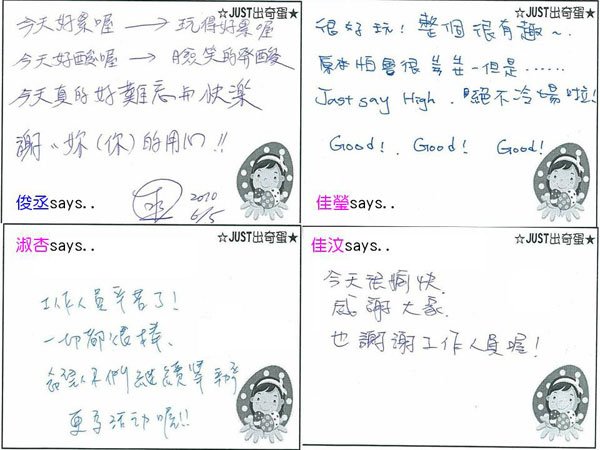 ☆JUST出奇蛋★
今天好累喔 → 玩得好累喔
今天好酸喔 → 臉笑的發酸
今天真的好難忘而快樂
謝〃妳(你)的用心!!
俊丞says..
丞
2010
6/5
☆JUST出奇蛋★
很好玩!整個很有趣~.
原本怕會很尷尬-但是......
Just say High.絕不冷場啦!
Good!. Good! Good!
佳瑩says..
☆JUST出奇蛋★
淑杏says..
工作人員辛苦了!
一切都很棒、
希望你們繼續舉辦
更多活動喔!!
☆JUST出奇蛋★
佳汶says..
今天很愉快.
感謝大家.
也謝謝工作人員喔!